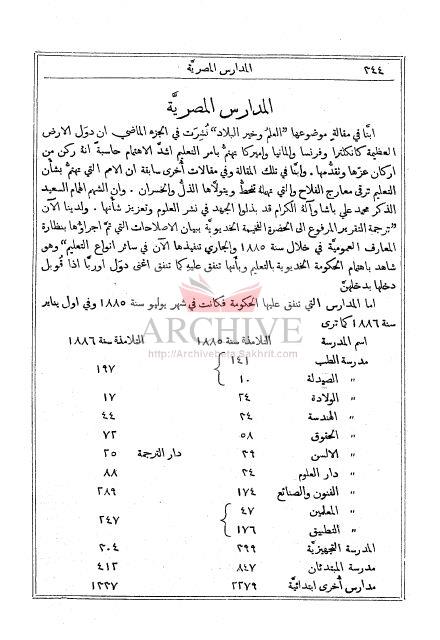 ٣٤٤ المدارس المصريَّة
المدارس المصريَّة
ابنَّا في مقالةٍ موضوعها "العلم وخير البلاد" نُشِرَت في الجزء الماضي ان دوَل الارض
العظيمة كانكلترا وفرنسا والمانيا واميركا تهتمُّ بامر التعليم اشدَّ الاهتمام حاسبةً انهُ ركن من
اركان عزّها وتقدُّمها . وابنَّا في تلك المقالة وفي مقالات أُخرى سابقة ان الامم التي تهتمُّ بشأن
التعليم ترقى معارج الفلاح والتي تهملهُ تنحطُّ ويتولَّاها الذلُّ والخسران . وان الشهم الهمام السعيد
الذكر محمد علي باشا وآلهُ الكرام قد بذلوا الجهد في نشر العلوم وتعزيز شأنها . ولدينا الآن
"ترجمة التقرير المرفوع الى الحضرة الفخيمة الخديوية ببيان الاصلاحات التي تمَّ اجراؤها بنظارة
المعارف العمومية في خلال سنة ١٨٨٥ والجاري تنفيذها الآن في سائر انواع التعليم" وهو
شاهد باهتمام الحكومة الخديوية بالتعليم وبأنها تنفق عليهِ كما تنفق اغنى دوَل اوربَّا اذا قوبل
دخلها بدخلهنَّ
اما المدارس التي تنفق عليها الحكومة فكانت في شهر يوليو سنة ١٨٨٥ وفي اول يناير
سنة ١٨٨٦ كما ترى
ARCHIVE
http://Archivebeta.Sakhrit.com
اسم المدرسة التلامذة سنة ١٨٨٥ التلامذة سنة ١٨٨٦
مدرسة الطب ١٤١
١٩٧
" الصيدلة ١٠
" الولادة ٢٤ ١٧
" الهندسة ٢٤ ٤٤
" الحقوق ٥٨ ٧٢
" الالسن ٢٩ دار الترجمة ٢٥
" دار العلوم ٢٤ ٨٨
" الفنون والصنائع ١٧٤ ٢٨٩
" المعلمين ٤٧
٢٤٧
" التطبيق ١٧٦
المدرسة التجهيزيَّة ٢٩٩ ٢٠٤
مدرسة المبتدئان ٨٤٧ ٤١٢
مدارس أُخرى ابتدائيَّة ٢٢٧٩ ١٢٢٧